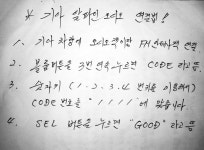 ※ 기아 알파인 오디오 연결법!
1. 기아 차량에 오디오 FM 안테나잭 연결
2. 볼륨버튼을 3번 연속 누르면 CODE 라고 뜸.
3. 숫자키 (1.2.3.4 번키를 이용해서)
CODE 번호를 "1111"에 맞춥니다
4. SEL 버튼을 누르면 "GOOD" 라고 뜸